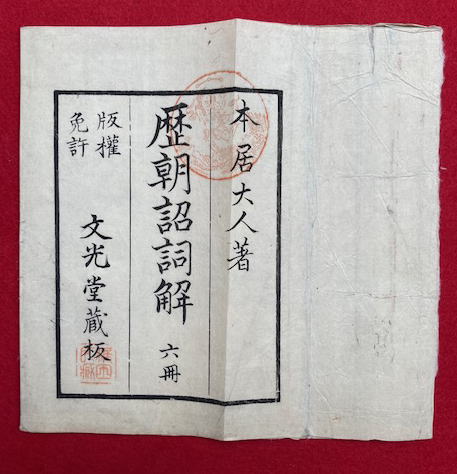 本居大人著
歴朝詔詞解 六冊
版權
免許
文光堂蔵板